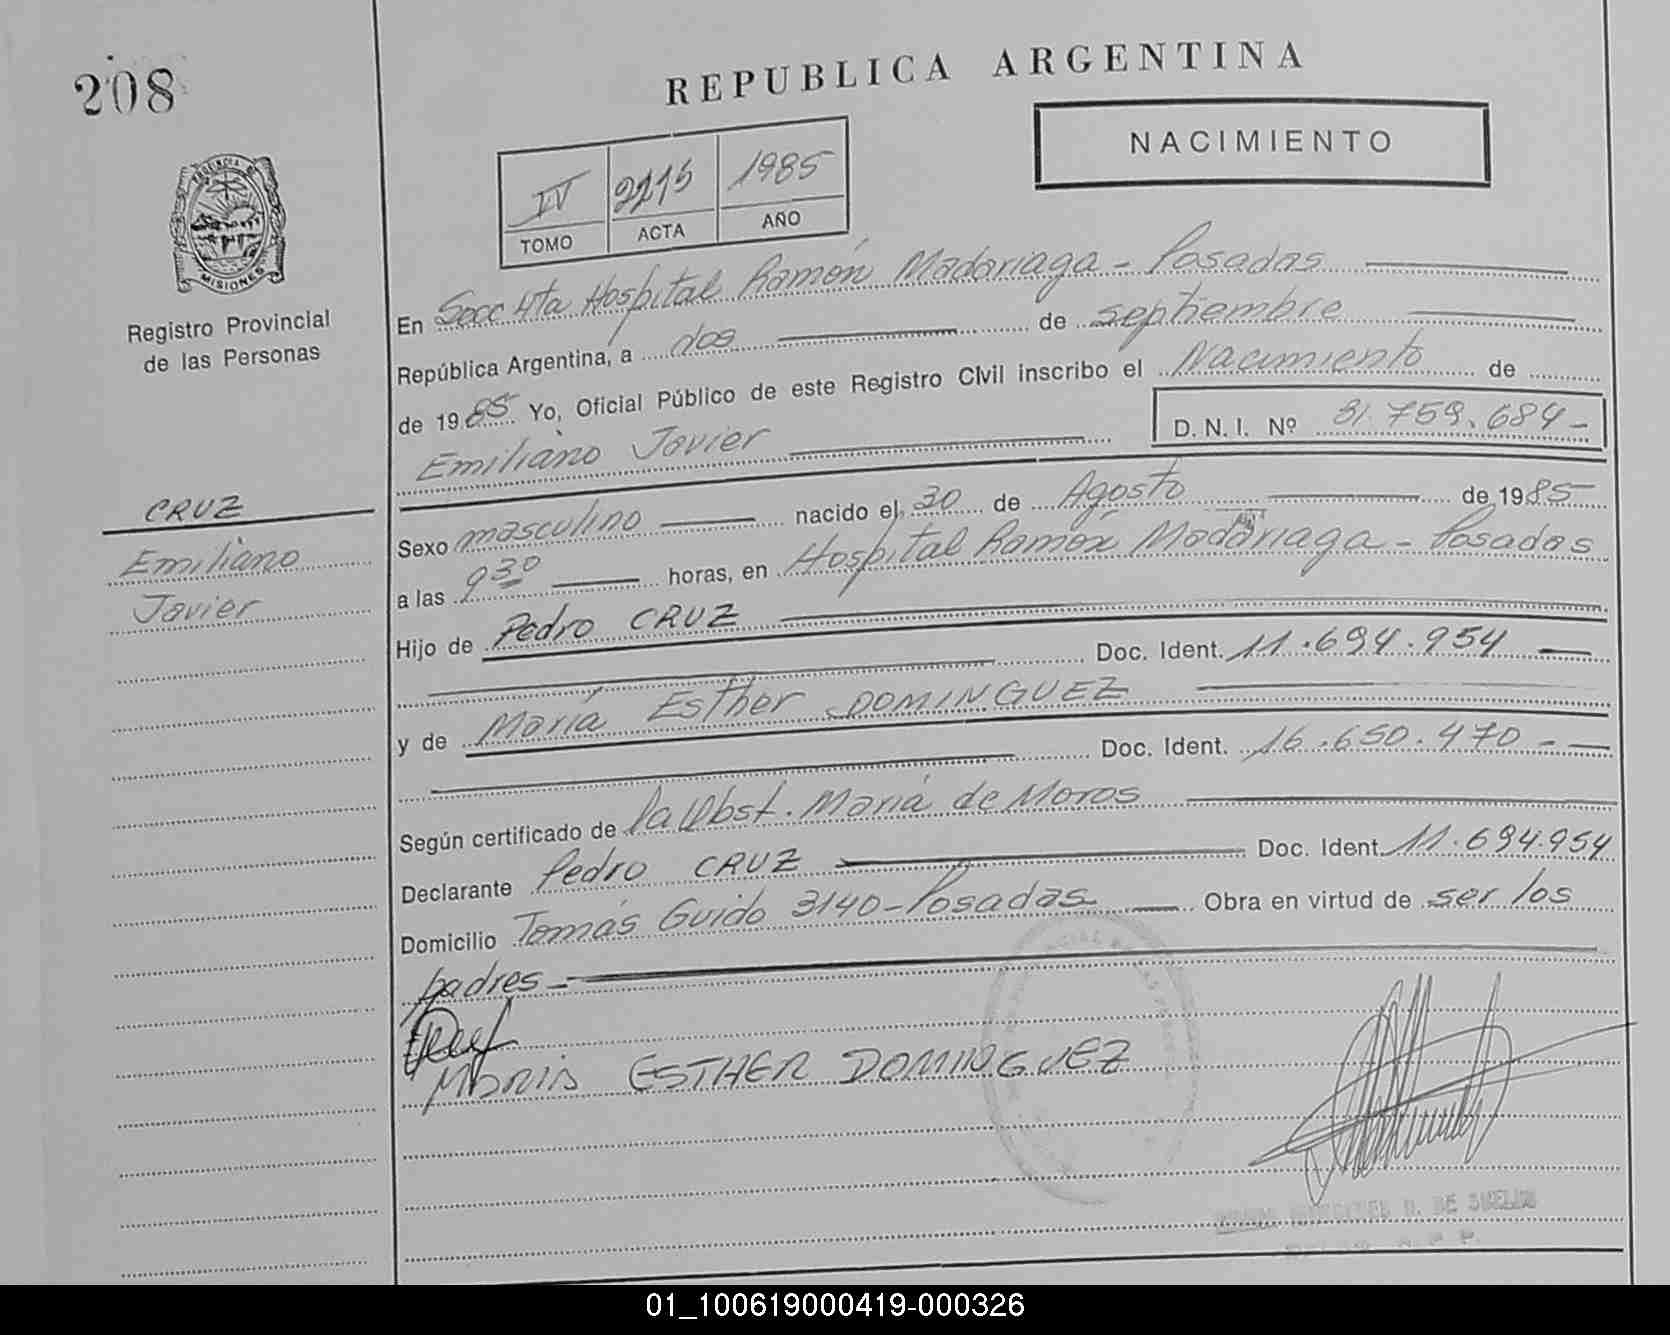 208
REPUBLICA ARGENTINA
NACIMIENTO
IV 2215 1985
TOMO ACTA AÑO
PROVINCIA DE
MISIONES
Registro Provincial
de las Personas
En Secc 4ta Hospital Ramón Madariaga - Posadas
República Argentina, a dos de septiembre
de 1985 Yo, Oficial Público de este Registro Civil inscribo el Nacimiento de
Emiliano Javier D. N. I. Nº 31.759.684-
CRUZ
Emiliano
Javier
Sexo masculino nacido el 30 de Agosto de 1985
a las 9 30 horas, en Hospital Ramón Madariaga - Posadas
Hijo de Pedro CRUZ
Doc. Ident. 11.694.954
y de María Esther DOMINGUEZ
Doc. Ident. 16.650.470 -
Según certificado de la Obst. María de Moros
Declarante Pedro CRUZ Doc. Ident. 11.694.954
Domicilio Tomás Guido 3140 - Posadas Obra en virtud de ser los
padres -
MARIA ESTHER DOMINGUEZ
01_100619000419-000326